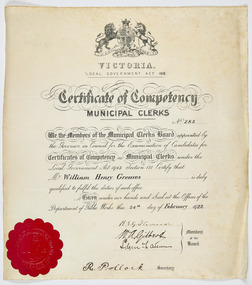 VICTORIA.
LOCAL GOVERNMENT ACT 1915
Certificate of Competency
MUNICIPAL CLERKS
No 282
We the Members of the Municipal Clerks Board appointed by
the Governor in Council for the Examination of Candidates for
Certificates of Competency as Municipal Clerks under the
Local Government Act 1915 section 171 Certify that
Mr William Henry Greaves is duly
qualified to fulfil the duties of such office.
Given under our hands and Seal at the Offices of the
Department of Public Works this 24th day of February 1922.
Members
of the
Board
R. Pollock Secretary